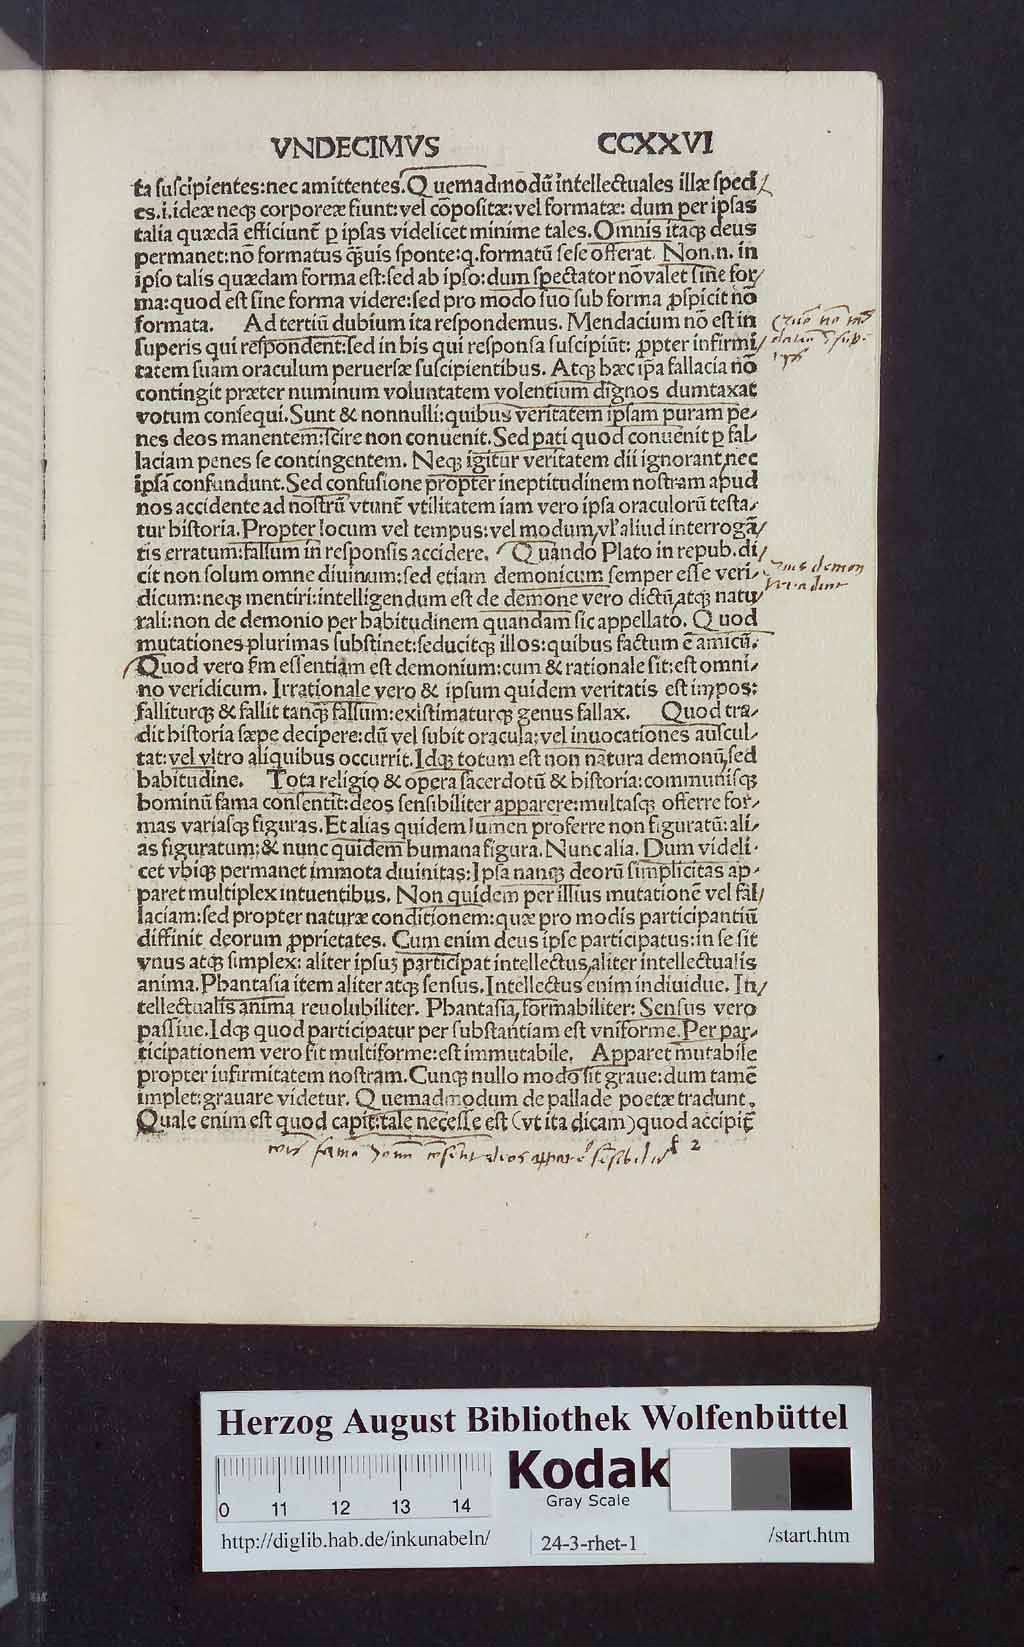 VNDECIMVS CCXXVI
ta suscipientes:nec amittentes.Quemadmodū intellectuales illæ speci
es.i.ideæ neq; corporeæ fiunt:vel cōpositæ:vel formatæ: dum per ipsas
talia quædā efficiunt̄ ꝑ ipsas videlicet minime tales.Omnis itaq; deus
permanet:nō formatus q̄uis sponte:q.formatū sese offerat. Non.n. in
ipso talis quædam forma est:sed ab ipso:dum spectator nō valet sine for/
ma:quod est sine forma videre:sed pro modo suo sub forma ꝓspicit nō
formata. Ad tertiū dubium ita respondemus. Mendacium nō est in
superis qui respondent:sed in his qui responsa suscipiūt: ꝓpter infirmi/
tatem suam oraculum peruersæ suscipientibus. Atq; hæc ip̄a fallacia nō
contingit præter numinum voluntatem volentium dignos dumtaxat
votum consequi.Sunt & nonnulli:quibus veritatem ipsam puram pe/
nes deos manentem:scire non conuenit.Sed pati quod conuenit ꝑ fal/
laciam penes se contingentem. Neq; igitur veritatem dii ignorant,nec
ipsā confundunt.Sed confusione propter ineptitudinem nostram apud
nos accidente ad nostrū vtunt̄ vtilitatem iam vero ipsa oraculorū testa/
tur historia.Propter locum vel tempus:vel modum,vl' aliud interrogā/
tis erratum:falsum in responsis accidere. Quando Plato in repub.di/
cit non solum omne diuinum:sed etiam demonicum semper esse veri/
dicum:neq; mentiri:intelligendum est de demone vero dictū,atq; natu/
rali:non de demonio per habitudinem quandam sic appellato. Quod
mutationes plurimas substinet:seducitq; illos:quibus factum ē amicū.
Quod vero s̄m essentiam est demonium:cum & rationale sit:est omni/
no veridicum. Irrationale vero & ipsum quidem veritatis est impos:
falliturq; & fallit tanq̄ falsum:existimaturq; genus fallax. Quod tra/
dit historia sæpe decipere:dū vel subit oracula:vel inuocationes auscul/
tat:vel vltro aliquibus occurrit.Idq; totum est non natura demonū,sed
habitudine. Tota religio & opera sacerdotū & historia:communisq;
hominū fama consentit:deos sensibiliter apparere:multasq; offerre for/
mas variasq; figuras.Et alias quidem lumen proferre non figuratū:ali/
as figuratum;& nunc quidem humana figura.Nunc alia. Dum videli/
cet vbiq; permanet immota diuinitas:Ipsa nanq; deorū simplicitas ap/
paret multiplex intuentibus. Non quidem per illius mutationē vel fal/
laciam:sed propter naturæ conditionem:quæ pro modis participantiū
diffinit deorum ꝓprietates. Cum enim deus ipse participatus:in se sit
vnus atq; simplex: aliter ipsuꝫ participat intellectus,aliter intellectualis
anima.Phantasia item aliter atq; sensus.Intellectus enim indiuidue. In/
tellectualis anima reuolubiliter. Phantasia,formabiliter: Sensus vero
passiue.Idq; quod participatur per substantiam est vniforme.Per par/
ticipationem vero fit multiforme:est immutabile. Apparet mutabile
propter iufirmitatem nostram.Cunq; nullo modo sit graue:dum tamē
implet:grauare videtur. Quemadmodum de pallade poetæ tradunt.
Quale enim est quod capit:tale necesse est (vt ita dicam)quod accipit̄
f 2
demon
fama deos
Herzog August Bibliothek Wolfenbüttel
Kodak
Gray Scale
0 11 12 13 14
http://diglib.hab.de/inkunabeln/ 24-3-rhet-1 /start.htm